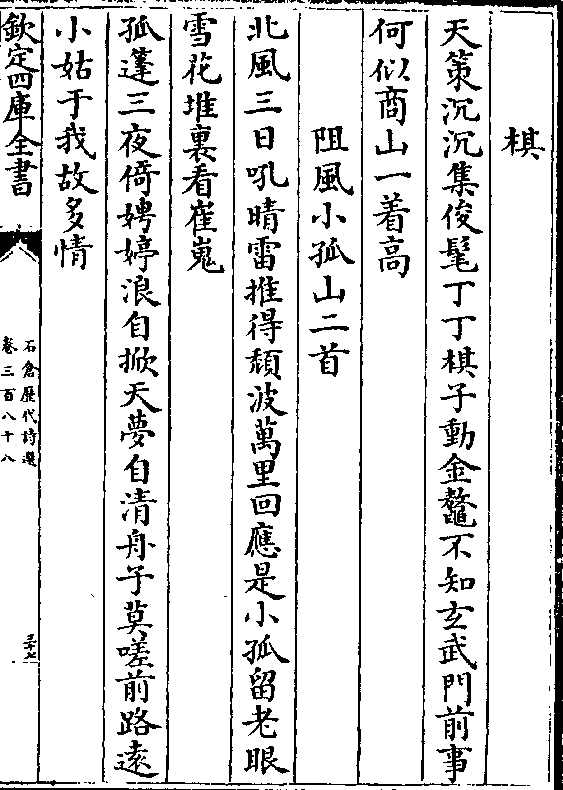 棋
天策沉沉集俊髦丁丁棋子動金鼇不知玄武門前事
何似商山一着高
阻風小孤山二首
北風三日吼晴雷推得頹波萬里回應是小孤留老眼
雪花堆裏看崔嵬
孤篷三夜倚娉婷浪自掀天夢自清舟子莫嗟前路遠
小姑于我故多情
欽定四庫全書
石倉歷代詩選
卷三百八十八
三十七